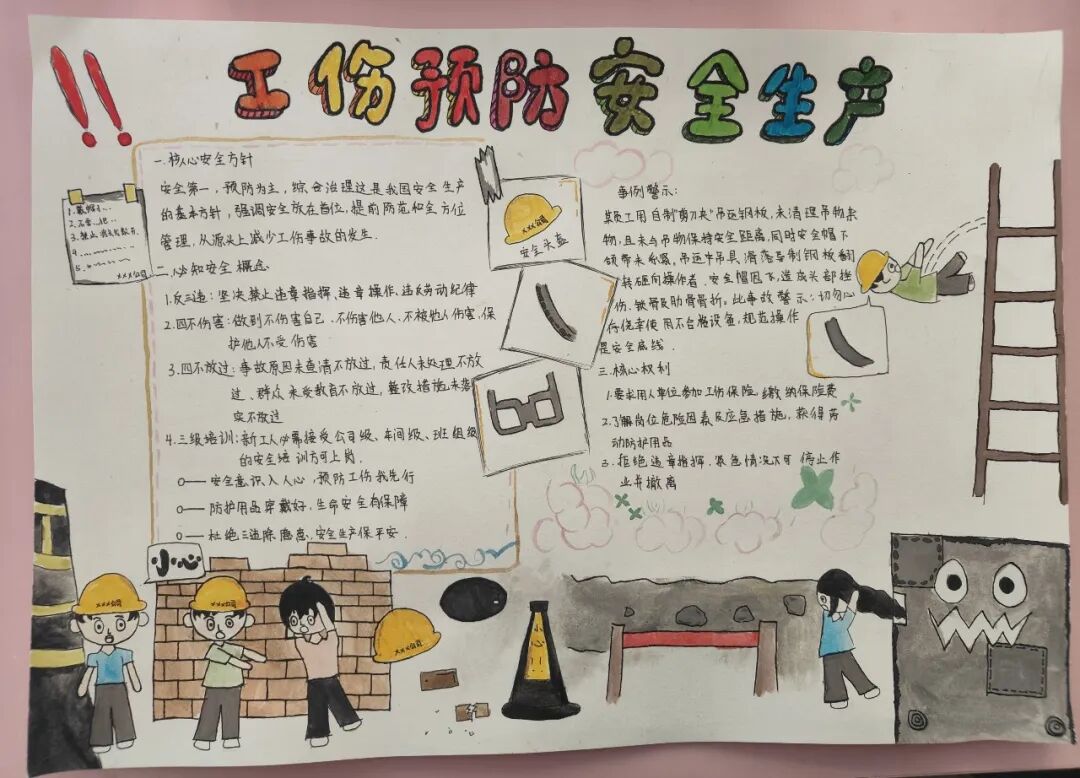 !!
工伤预防安全生产
一.核心安全方针
安全第一,预防为主,综合治理这是我国安全生产
的基本方针,强调安全放在首位,提前防范和全方位
管理,从源头上减少工伤事故的发生.
二.必知安全概念
1.反三违:坚决禁止违章指挥、违章操作、违反劳动纪律
2.四不伤害:做到不伤害自己、不伤害他人、不被他人伤害,保
护他人不受伤害
3.四不放过:事故原因未查清不放过,责任人未处理不放
过、群众未受教育不放过,整改措施未落
实不放过
4.三级培训:新工人必需接受公司级、车间级、班组级
的安全培训方可上岗.
安全意识入人心,预防工伤我先行
防护用品穿戴好,生命安全有保障
杜绝三违除隐患,安全生产保平安.
1.戴帽子...
2.不要...把...
3.禁止
4.
5.
XXX公司
XXX公司
安全头盔
事例警示:
某员工用自制"剪刀夹"吊运钢板,未清理吊物杂
物,且未与吊物保持安全距离,同时安全帽下
颌带未系紧.吊运中吊具滑落导制钢板翻
转砸向操作者、安全帽因下,造成头部挫
伤、锁骨及肋骨骨折。此事故警示:切勿心
存侥幸使用不合格设备,规范操作
是安全底线.
三.核心权利
1.要求用人单位参加工伤保险,缴纳保险费
2.了解岗位危险因素及应急措施,获得劳
动防护用品
3.拒绝违章指挥.紧急情况下可停止作
业并撤离
小心
XXX公司
XXX公司
XXX公司
小心